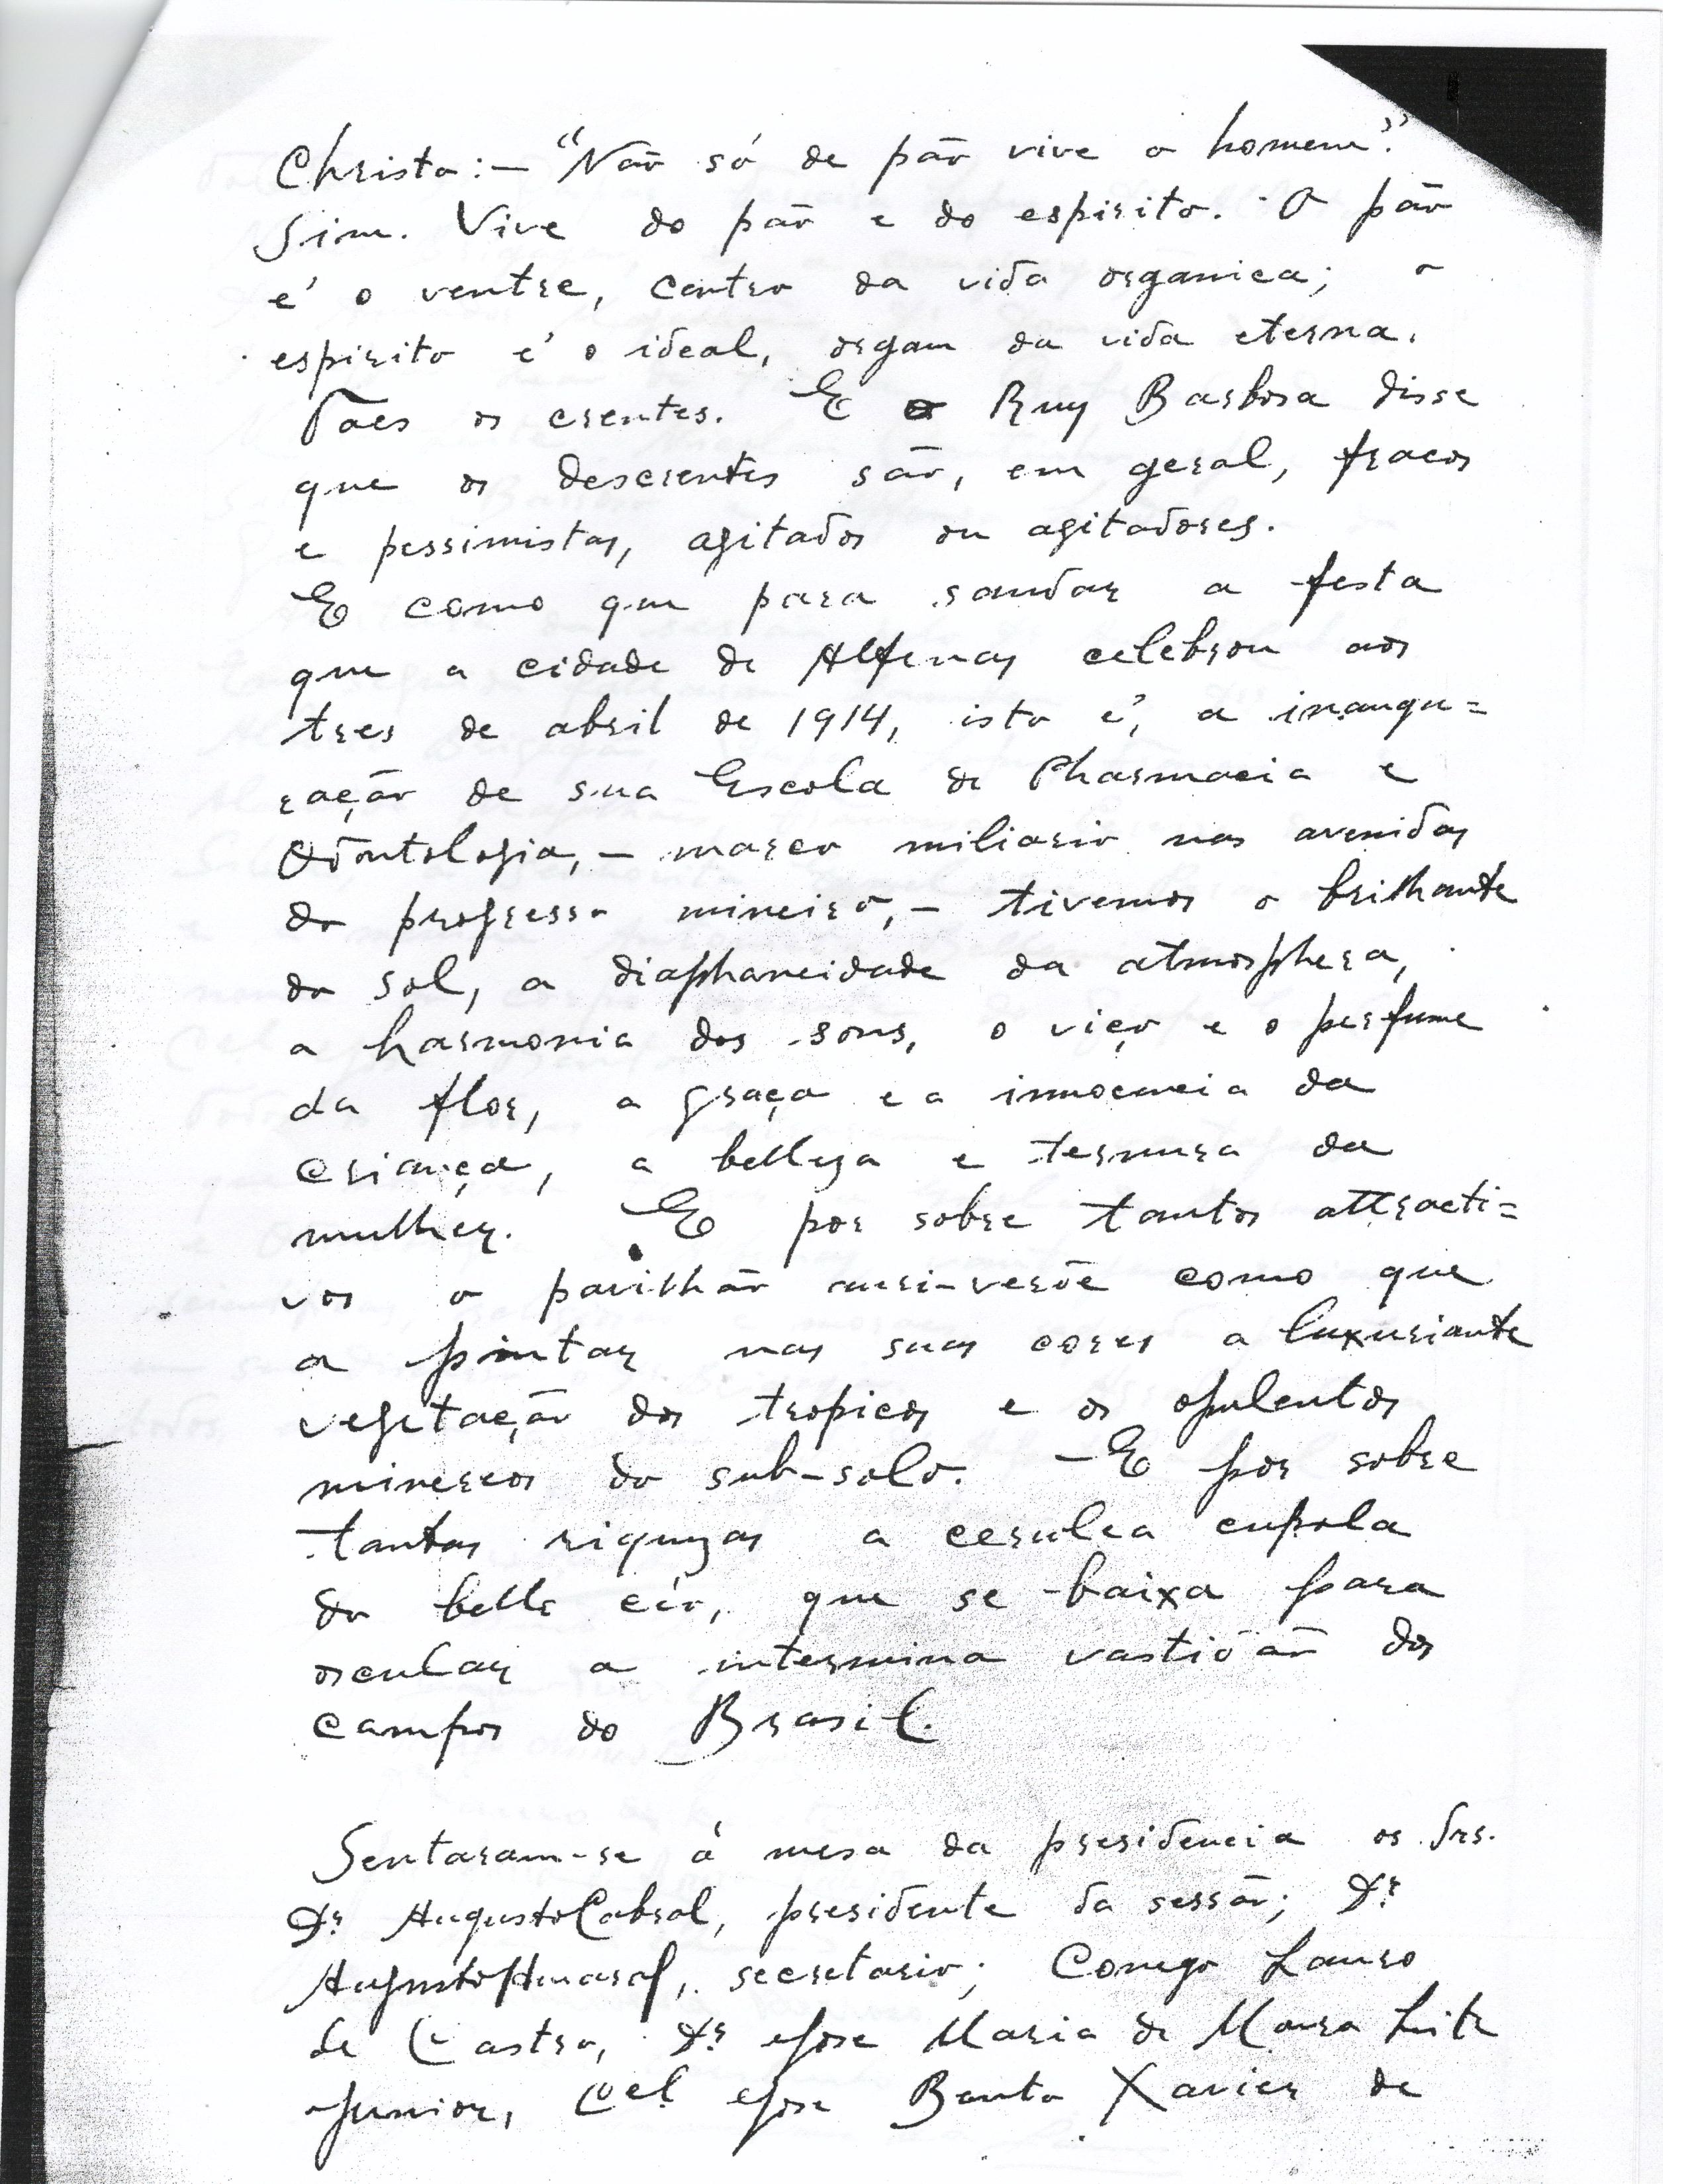 Christo: — "Não só de pão vive o homem".
Sim. Vive do pão e do espirito. O pão
é o ventre, centro da vida organica; o
espirito é o ideal, orgam da vida eterna.
Taes os crentes. E Ruy Barbosa disse
que os descrentes são, em geral, fracos
e pessimistas, agitados ou agitadores.
E como que para saudar a festa
que a cidade de Alfenas celebrou aos
tres de abril de 1914, isto é, a inaugu=
ração de sua Escola de Pharmacia e
Odontologia, — marco miliario nas avenidas
do progresso mineiro, — tivemos o brilhante
do sol, a diaphaneidade da atmosphera,
a harmonia dos sons, o viço e o perfume
da flor, a graça e a innocencia da
criança, a belleza e ternura da
mulher. E por sobre tantos attracti=
vos o pavilhão auri-verde como que
a pintar nas suas cores a luxuriante
vegetação dos tropicos e os opulentos
mineros do sub-solo. — E por sobre
tantas riquezas a cerulea cupola
do bello céo, que se baixa para
oscular a intermina vastidão dos
campos do Brasil.
Sentaram-se á mesa da presidencia os Srs.
Dr. Augusto Cabral, presidente da sessão; Dr.
Augusto Amaral, secretario; Conego Lauro
de Castro, Dr. Jose Maria de Moura Leite
Junior, Cel. Jose Bento Xavier de